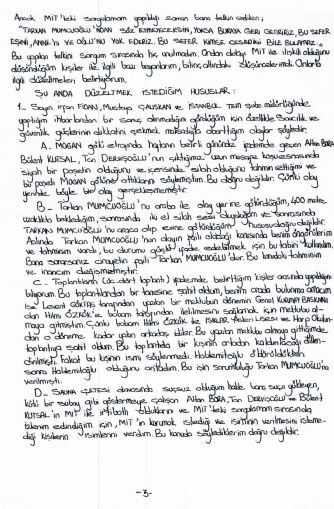 Ancak MİT'teki sorgulamam yapıldığı zaman bana telkin edilen;
"TARKAN MUMCUOĞLU'NDAN SÖZ ETMEYECEKSİN, YOKSA BURAYA GERİ GETİRİRİZ, BU SEFER
EŞİNİ, ANNE'Nİ VE OĞLU'NU YOK EDERİZ. BU SEFER KİMSE CESEDİNİ BİLE BULAMAZ."
Bu yapılan telkini sorgum sırasında hiç unutmadım. Ondan dolayı MİT ile ilişkili olduğunu
düşündüğüm kişiler ile ilgili bazı beyanlarım, bilinç altındaki düşüncelerimdi. Onlarla
ilgili düzeltmeleri belirtiyorum.
ŞU ANDA DÜZELTMEK İSTEDİĞİM HUSUSLAR:
1. Sayın İrfan FİDAN, Mustafa ÇALIŞKAN ve İSTANBUL TEM şube müdürlüğünde
yaptığım ihbarlardan bir sonuç alınmadığını gördüğüm için özellikle Savcılık ve
güvenlik güçlerinin dikkatini çekmek maksadıyla abarttığım olaylar söyledir.
A. MOGAN gölü etrafında haftanın belirli günündeki yedeminde geçen Altan BORA,
Bülent KURSAL, Tan DERVİŞOĞLU'nun çıktığımız uzun mesafe koşu esnasında
siyah bir poşetin olduğunu ve içerisinde silah olduğunu tahmin ettiğimi ve
bir poşeti MOGAN gölüne attıklarını söylemiştim. Bu doğru değildir. Çünkü olay
yerinde böyle bir olay gerçekleşmemiştir.
B - Tarkan MUMCUOĞLU'nu araba ile olay yerine götürdüğüm, 400 metre
uzaklıkta beklediğim, sonrasında iki el silah sesi duyduğum ve sonrasında
TARKAN MUMCUOĞLU'nu araca alıp evine götürdüğüm hususu doğru değildir.
Aslında Tarkan MUMCUOĞLU'nun olayın faili olduğu konusunda benim öngörülerim
ve tahminim vardı, bu durumu güçlü ifade edebilmek için bu tabiri kullandım.
Bana sorarsanız cinayetin faili Tarkan MUMCUOĞLU'dur. Bu konudaki tahminim
ve inancım değişmemiştir.
C - Toplantıların (üç-dört toplantı) ifademde belirttiğim kişiler arasında yapıldığını
biliyorum. Bu toplantılardan bir tanesine şahit oldum, benim orada bulunma amacım
ise Levent GÖKTAŞ tarafından yazılan bir mektubun dönemin Genel KURMAY BAŞKANI
olan Hilmi ÖZKÖK'e babam tarafından iletilmesini sağlamak için mektubu al-
maya gitmiştim. Çünkü babam Hilmi ÖZKÖK ile IŞIKLAR Askeri Lisesi ve Harp Okulun-
dan o döneme kadar yakın arkadaş idiler. Bu yazılan mektubu almaya gittiğimde
toplantıya şahit oldum. Bu toplantıda bir kişinin ortadan kaldırılacağı dillen-
dirilmişti, fakat bu kişinin ismi söylenmedi. Hablemitoğlu öldürüldükten
sonra Hablemitoğlu olduğunu anladım. Bu işin sorumluluğu Tarkan MUMCUOĞLU'na
verilmişti.
D - SAUNA ÇETESİ davasında suçsuz olduğum halde bana suçu yükleyen,
kötü bir subay gibi göstermeye çalışan Altan BORA, Tan DERVİŞOĞLU ve Bülent
KURSAL'ın MİT ile irtibatlı olduklarını ve MİT'teki sorgulamam sırasında
telkin edildiğim için, MİT'in korumak istediği ve isminin verilmesini isteme-
diği kişilerin isimlerini verdim. Bu konuda söylediklerim doğru değildir.
-3-